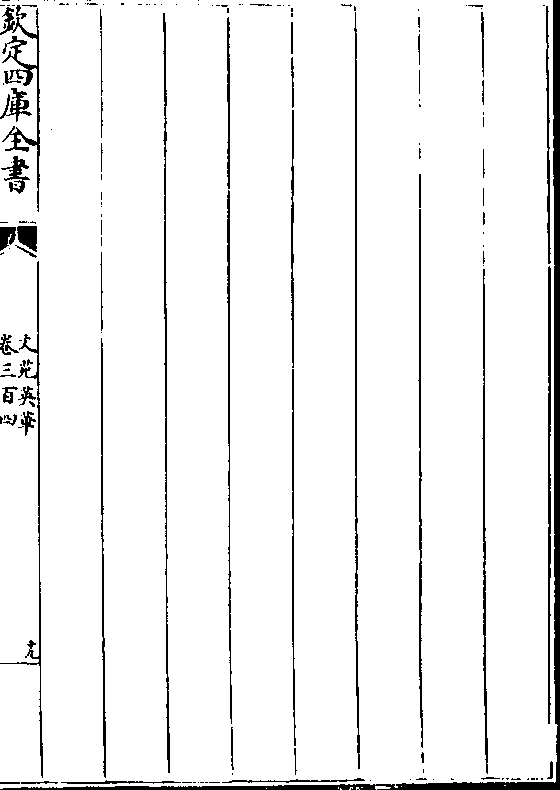 欽定四庫全書
文苑英華
卷三百四
十九